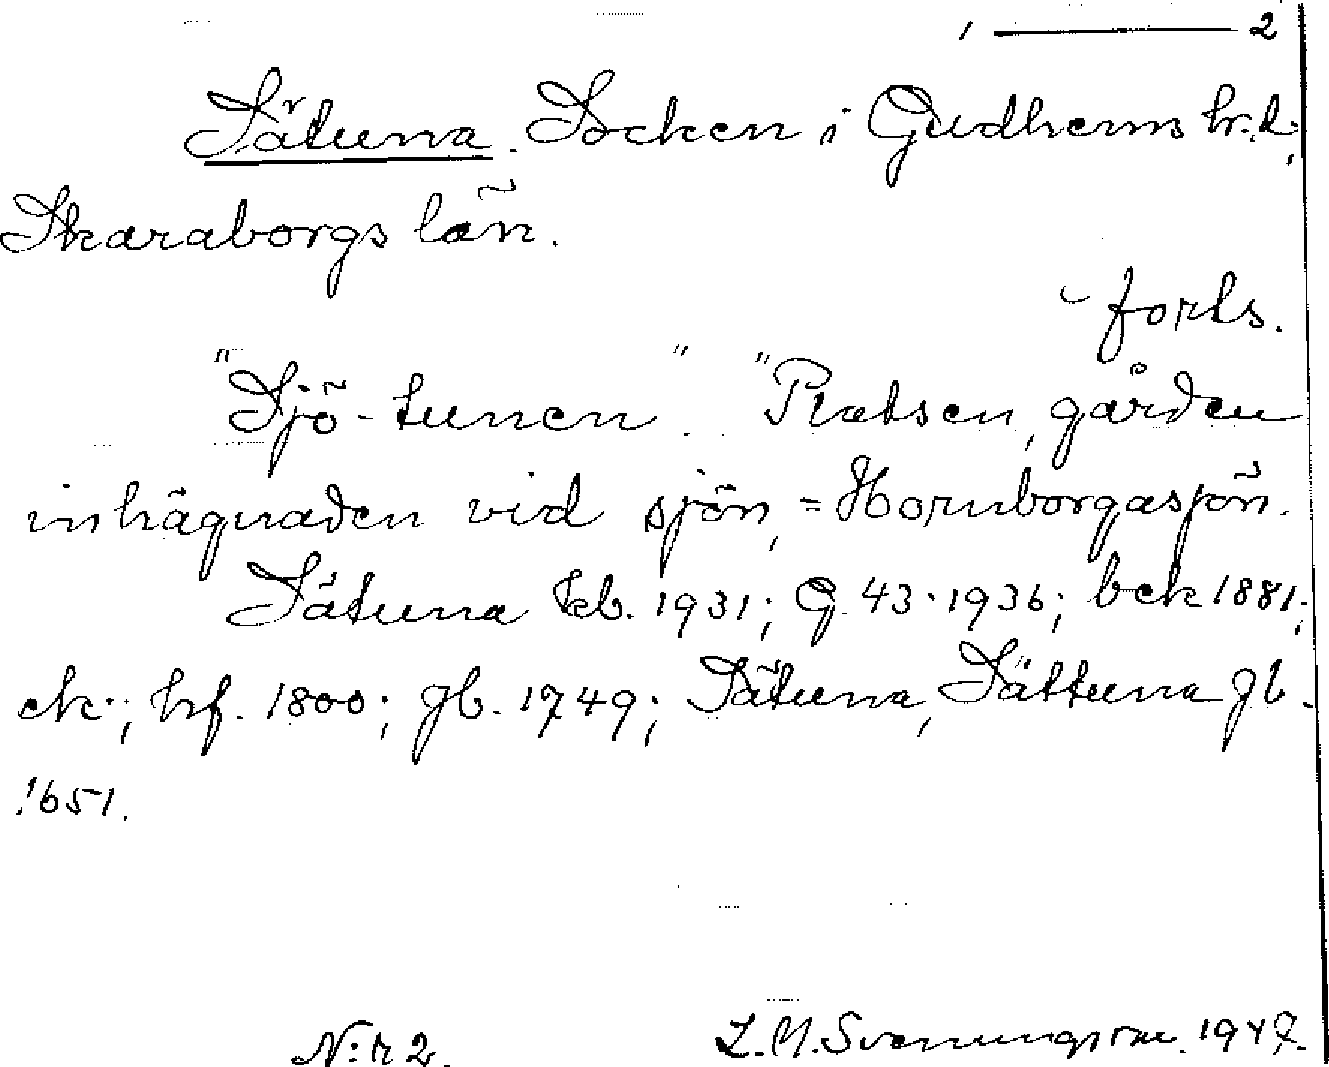 1 ——— 2
Sätuna. Socken i Gudhems hr.d;
Skaraborgs län.
forts.
"Sjö-tunen". "Platsen, gården
inhägnaden vid sjön, = Hornborgasjön.
Sätuna kb. 1931; G. 43. 1936; bck 1881;
ck.; hf. 1800; gb. 1749; Sätuna, Sättuna gb.
1651.
N:r 2. L.M. Svenungsson. 1947.